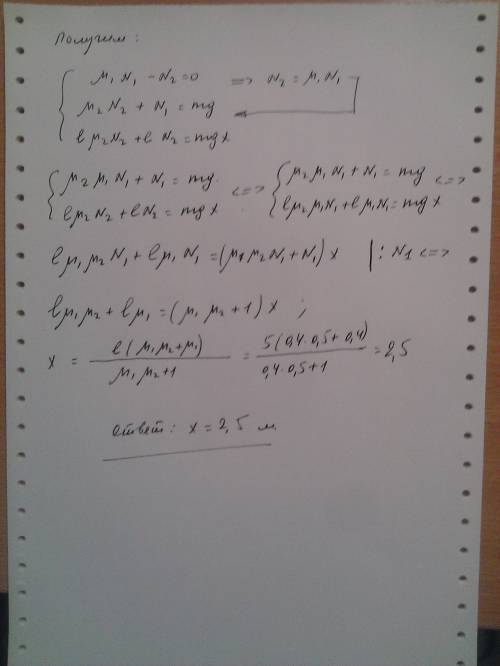 Получим:
μ₁N₁ - N₂ = 0 => N₂ = μ₁N₁
μ₂N₂ + N₁ = mg
lμ₂N₂ + l N₂ = mgx
μ₂μ₁N₁ + N₁ = mg. <=> μ₂μ₁N₁ + N₁ = mg <=>
lμ₂N₂ + lN₂ = mgx lμ₂μ₁N₁ + lμ₁N₁ = mgx
lμ₁μ₂N₁ + lμ₁N₁ = (μ₁μ₂N₁ + N₁)x |: N1 <=>
lμ₁μ₂ + lμ₁ = (μ₁μ₂ + 1)x ;
x = l(μ₁μ₂+μ₁) / μ₁μ₂+1 = 5(0,4·0,5+0,4) / 0,4·0,5+1 = 2,5
ответ: x = 2,5 м.